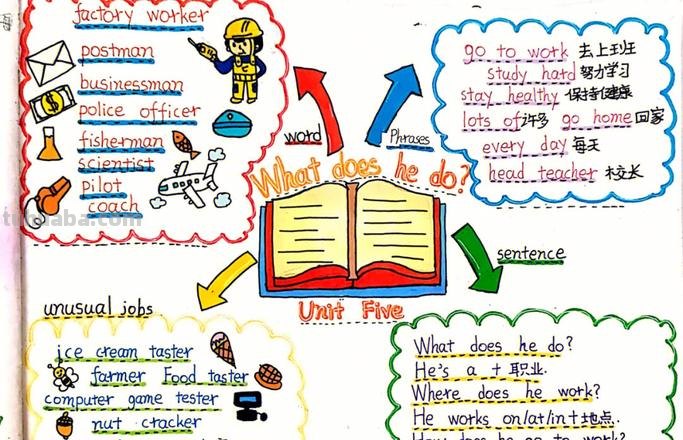 factory worker
postman
businessman
police officer
fisherman
scientist
pilot
coach
word
Phrases
go to work 去上班
study hard 努力学习
stay healthy 保持健康
lots of 许多 go home 回家
every day 每天
head teacher 校长
What does he do?
Unit Five
sentence
unusual jobs
ice cream taster
farmer Food taster
computer game tester
nut cracker
What does he do?
He's a + 职业.
Where does he work?
He works on/at/in + 地点.
How does he go to work?